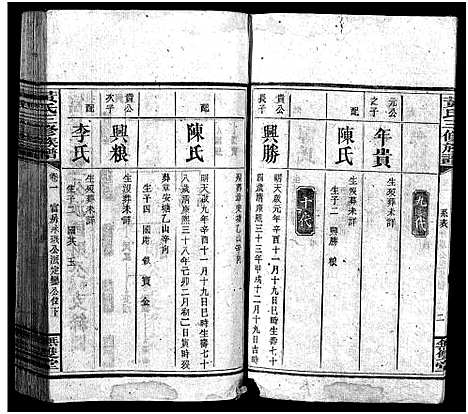 黃氏三修族譜
系表
二
九代
元公之子
年貴
生歿葬未詳
配
陳氏
生歿葬未詳
生子二 興勝 糧
十代
貴公長子
興勝
明天啟元年辛酉十一月十九日巳時生壽七十
四歲清康熙三十三年甲戌十二月十九日吉時
配
陳氏
明天啟九年辛酉十一月十九日巳時生壽七十
八歲清康熙三十八年己卯二月初二日寅時歿
葬章安塘乙山辛向
生子四 國 寶 金
貴公次子
興糧
生歿葬未詳
配
李氏
生歿葬未詳
生子二 國 玉
卷一
黃氏三修族譜